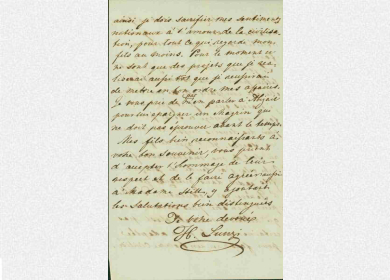 ainsi je dois sacrifier mes sentiments
nationaux à l'amour de la civilisa
tion, pour tout ce qui regarde mon
fils au moins. Pour le moment ce
ne sont que des projets que je
aussi que je
de mettre en bon ordre mes affaires.
Je vous prie de n'en parler à
pour lui un qui
ne doit pas éprouver avant le temps.
Mes fils, bien reconnaissants à
votre bon souvenir, vous prient
d'accepter l'hommage de leur
respect et de le faire agréer aussi
à Madame Hill, y ajoutant
les salutations bien distinguées
De votre dévoué
H. Lunzi